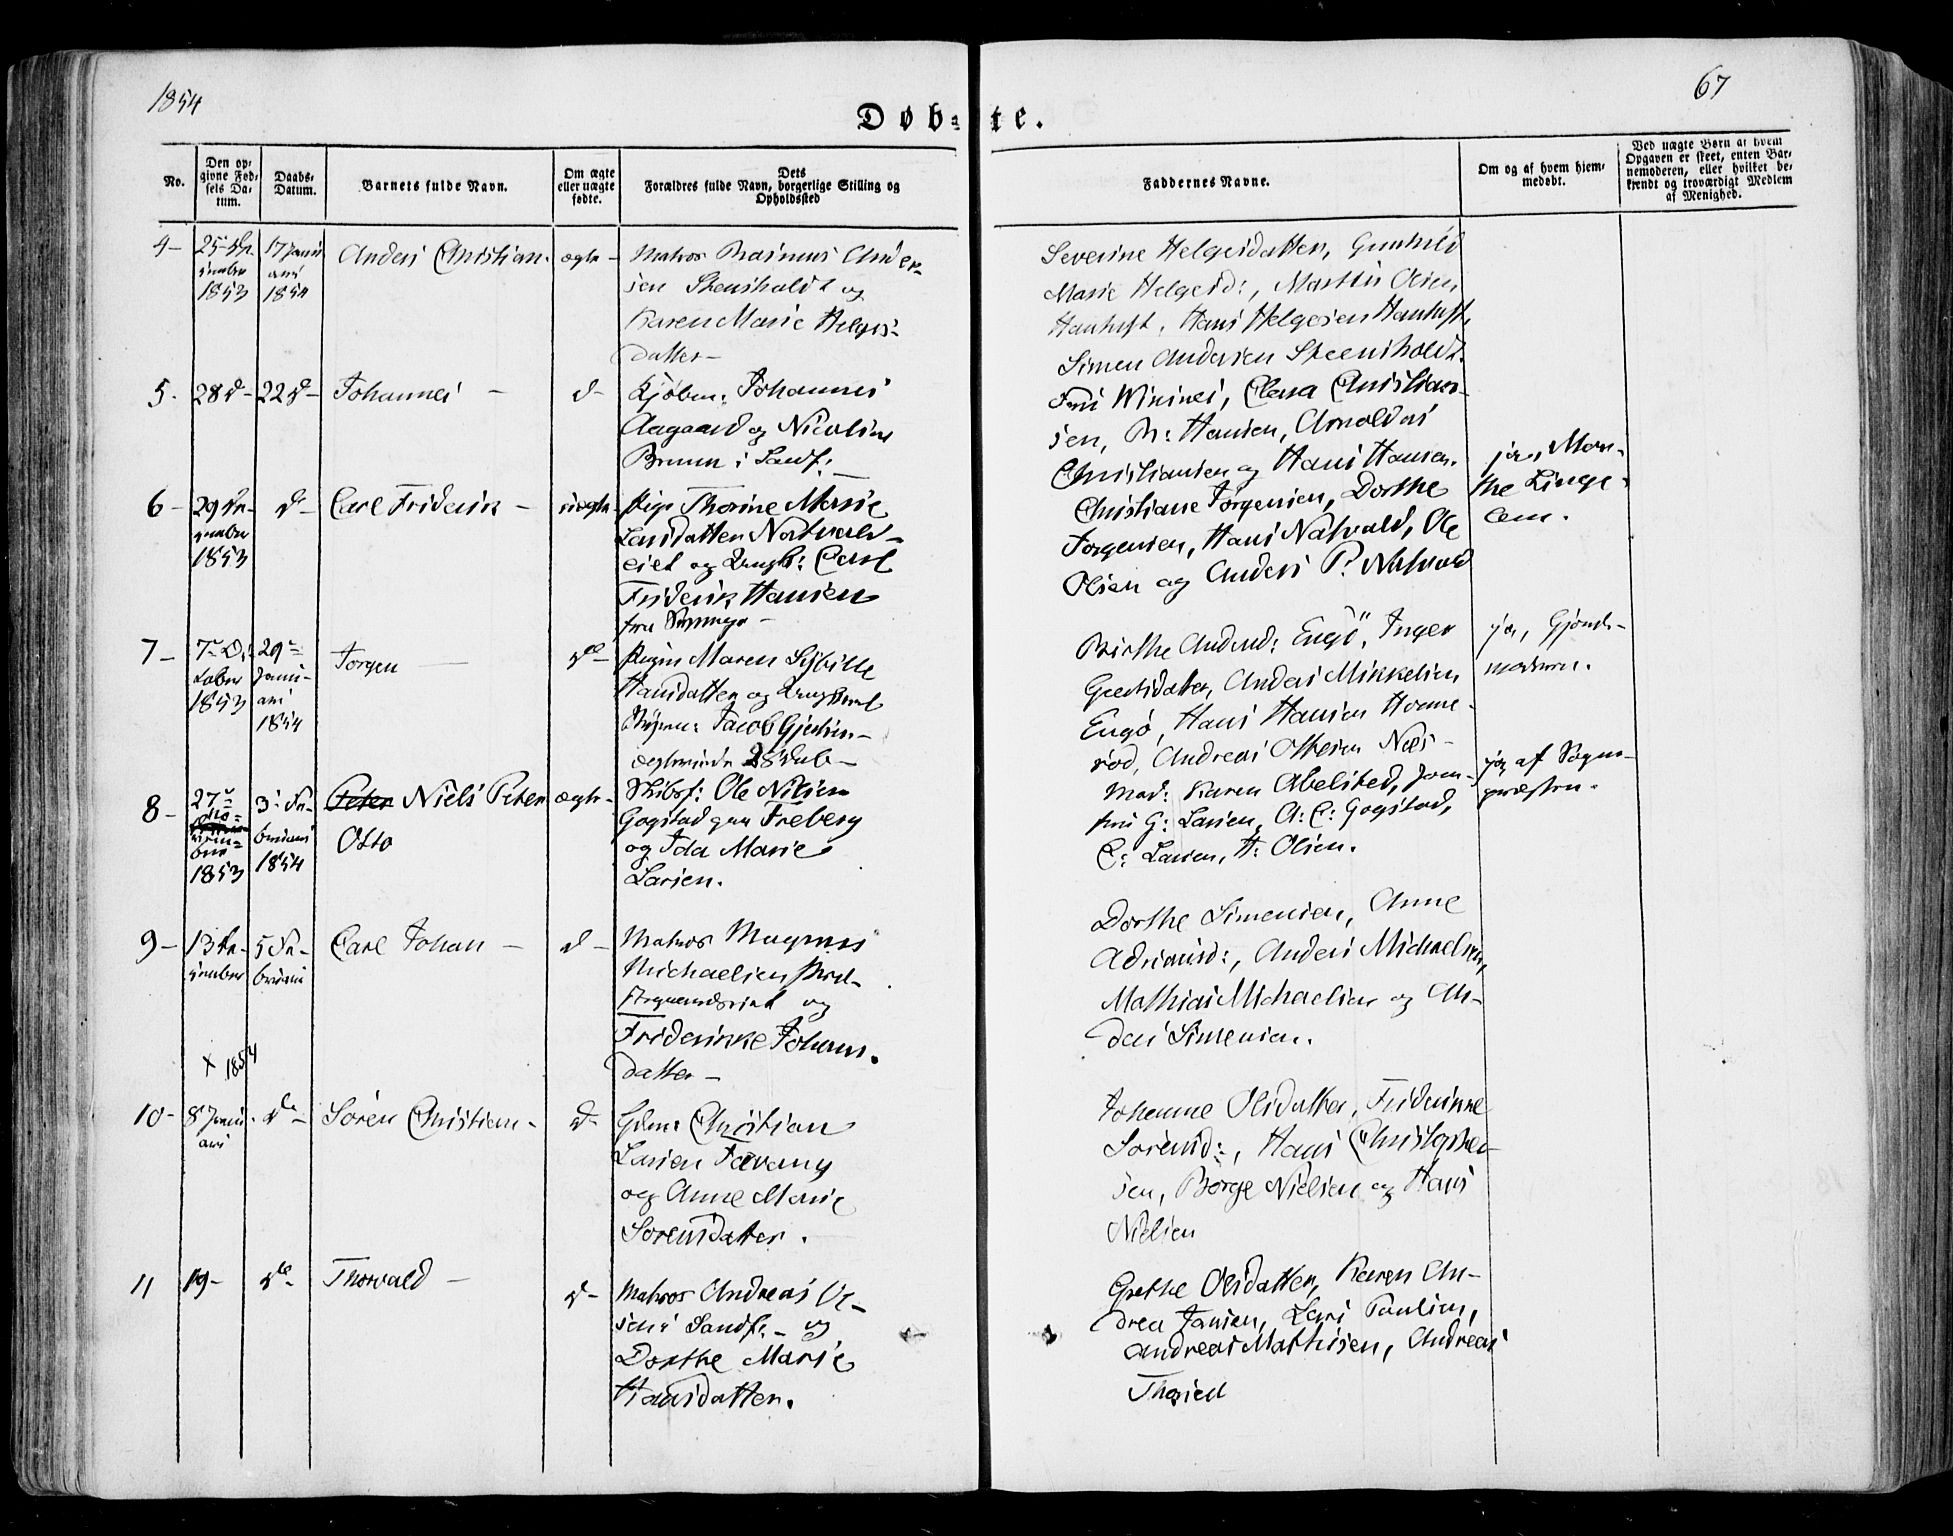 1854
67
Døb=te.
No.
Den op=
givne Fød=
sels Da=
tum.
Daabs=
Datum.
Barnets fulde Navn.
Om ægte
eller uægte
fødte.
Dets
Forældres fulde Navn, borgerlige Stilling og
Opholdssted
Faddernes Navne.
Om og af hvem hjem=
medøbt.
Ved uægte Børn af hvem
Opgaven er skeet, enten Bar=
nemoderen, eller hvilket be=
kjendt og troværdigt Medlem
af Menighed.
4-
25 De
cember
1853
17 Janu
ari
1854
Anders Christian.
ægte -
Matros Rasmus Ander-
sen Steensholdt og
Karen Marie Helges-
datter -
Severine Helgesdatter, Gunhild
Marie Helgesd:, Martin Olsen
Hans Helgesen
Simen Andersen Steensholdt.
5.
28 d-
22 d-
Johannes -
d-
Kjøbm: Johannes
Aagaard og Nicoline
Bruun i Sandf:
Christian-
sen, Hansen, Arnoldus
Christiansen og Hans Hansen.
6-
29 De-
cember
1853
d-
Carl Friderik -
uægte
Pige Thorine Marie
Larsdatter
eiet og Ungk: Carl
Friderik Hansen
fra
Christiane Jørgensen, Dorthe
Jørgensen, Hans Natvald, Ole
Olsen og Anders P. Natvald
ja, Mar-
the Linge-
lem.
7-
7- Oc
tober
1853
29-
Janu-
ari
1854
Jørgen -
do-
Pigen Maren Sybille
Hansdatter og Ungkarl
Jacob Gjertsen
Birthe Andersd: Engö, Inger
Gjertsdatter, Anders Mikkelsen
Engö, Hans Hansen
rød, Andreas Ottesen Næs-
ja, Gjord-
moderen.
8-
27-
1853
3- Fe-
bruari
1854
Peter Niels Peter
Otto
ægte-
Skibsf: Ole Nilsen
Gogstad paa Freberg
og Ida Marie
Larsen.
Mad: Karen Abelsted, Jom-
fru G: Larsen, A: C: Gogstad,
C: Larsen, H: Olsen.
ja, af Sogne-
præsten.
9-
13 De-
cember
5 Fe-
bruari
Carl Johan -
d-
Matros Magnus
Michaelsen
og
Friderikke Johans-
datter -
Dorthe Simensen, Anne
Adriansd:, Anders Michaelsen,
Mathias Michaelsen og An-
ders Simensen.
x 1854
10-
8 Janu
ari
do-
Søren Christian -
d-
Christian
Larsen
og Anne Marie
Sørensdatter.
Johanne Olsdatter, Friderikke
Sørensd:, Hans Christopher-
sen, Børge Nielsen og Hans
Nielsen
11
19-
do-
Thorvald -
d-
Matros Andreas Ol-
sen i Sandf: - og
Dorthe Marie
Hansdatter.
Grethe Olsdatter, Karen An-
drea Jansen, Lars Paulsen,
Andreas Mathisen, Andreas